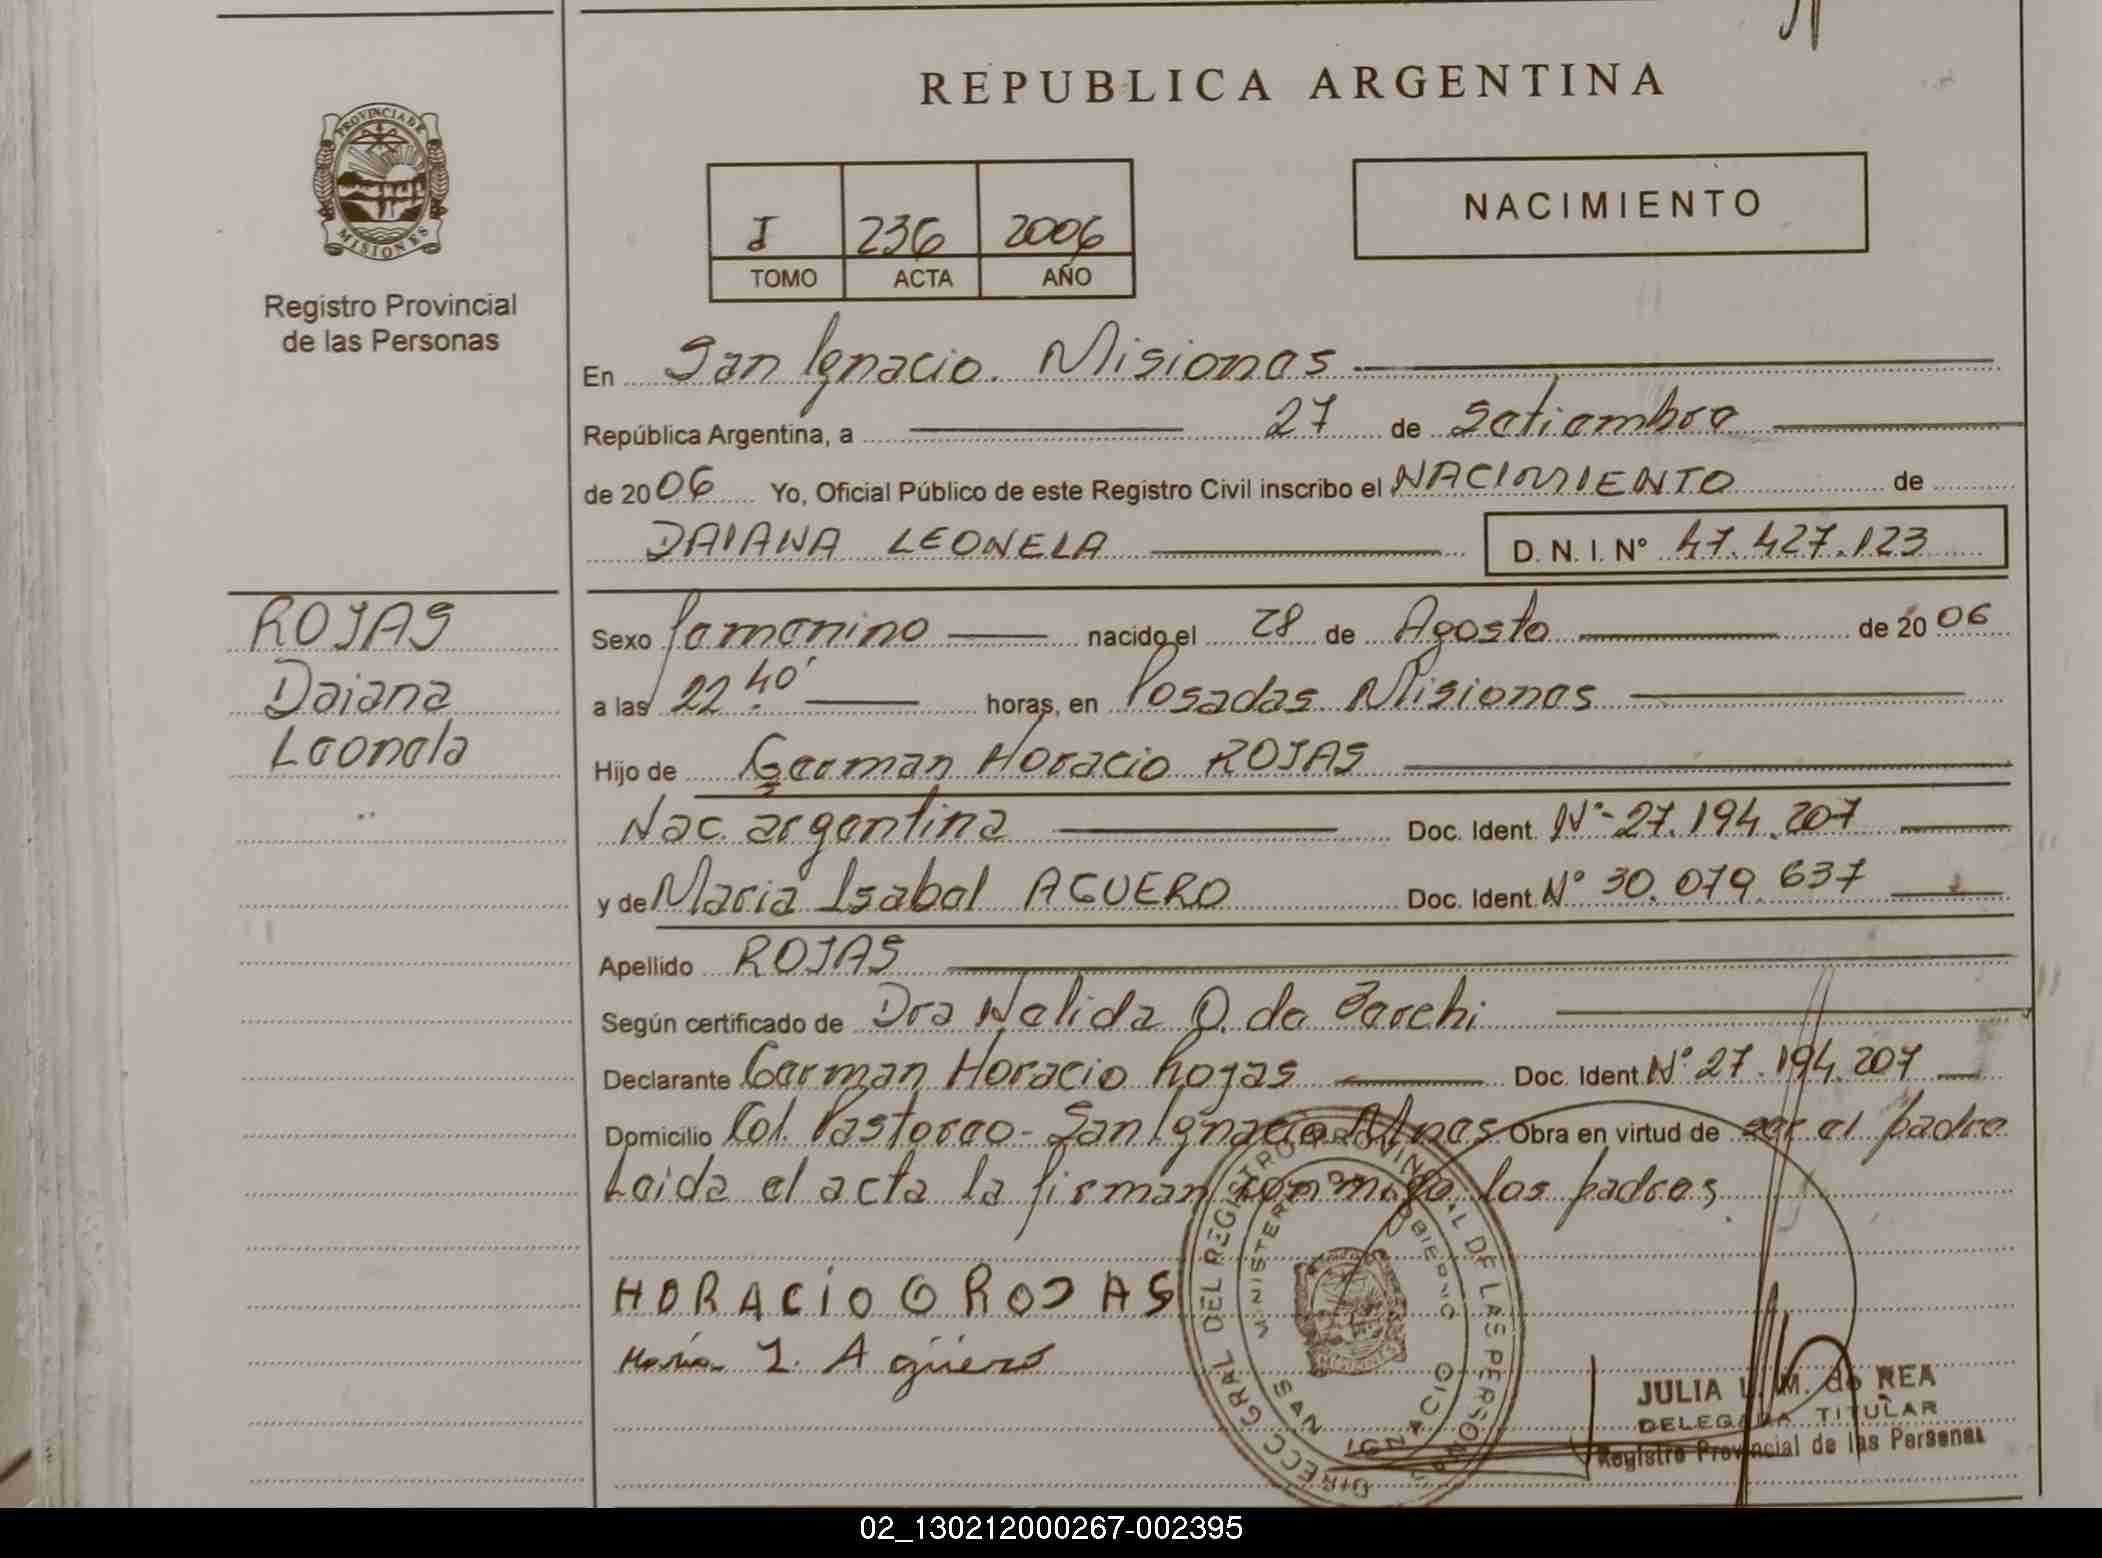 REPUBLICA ARGENTINA
PROVINCIA DE
MISIONES
Registro Provincial
de las Personas
I 236 2006
TOMO ACTA AÑO
NACIMIENTO
En San Ignacio. Misiones
República Argentina, a 27 de Setiembre
de 2006 Yo, Oficial Público de este Registro Civil inscribo el NACIMIENTO de
DAIANA LEONELA D. N. I. Nº 47.427.123
ROJAS
Daiana
Leonela
Sexo femenino nacido el 28 de Agosto de 2006
a las 22.40' horas, en Posadas Misiones
Hijo de German Horacio ROJAS
Nac. argentina Doc. Ident. Nº 27.194.207
y de Maria Isabel AGUERO Doc. Ident. Nº 30.079.637
Apellido ROJAS
Según certificado de Dra Nelida O. de
Declarante German Horacio Rojas Doc. Ident. Nº 27.194.207
Domicilio Col. Pastoreo - San Ignacio Mnes Obra en virtud de ser el padre
Leida el acta la firman conmigo los padres.
HORACIO G ROJAS
María I. Agüero
DIRECC GRAL DEL REGISTRO PROVINCIAL DE LAS PERSONAS
MINISTERIO DE GOBIERNO
SAN IGNACIO
MISIONES
JULIA M. de REA
DELEGADA TITULAR
Registro Provincial de las Personas
02_130212000267-002395